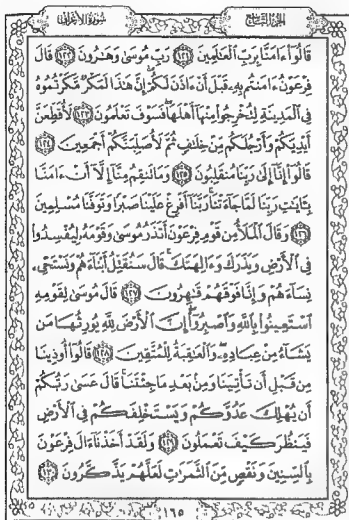 الجزء التاسع
سورة الأعراف
قَالُوٓا۟ ءَامَنَّا بِرَبِّ ٱلْعَٰلَمِينَ ١٢١ رَبِّ مُوسَىٰ وَهَٰرُونَ ١٢٢ قَالَ
فِرْعَوْنُ ءَامَنتُم بِهِۦ قَبْلَ أَنْ ءَاذَنَ لَكُمْ إِنَّ هَٰذَا لَمَكْرٌ مَّكَرْتُمُوهُ
فِى ٱلْمَدِينَةِ لِتُخْرِجُوا۟ مِنْهَآ أَهْلَهَا فَسَوْفَ تَعْلَمُونَ ١٢٣ لَأُقَطِّعَنَّ
أَيْدِيَكُمْ وَأَرْجُلَكُم مِّنْ خِلَٰفٍ ثُمَّ لَأُصَلِّبَنَّكُمْ أَجْمَعِينَ ١٢٤
قَالُوٓا۟ إِنَّآ إِلَىٰ رَبِّنَا مُنقَلِبُونَ ١٢٥ وَمَا تَنقِمُ مِنَّآ إِلَّآ أَنْ ءَامَنَّا
بِـَٔايَٰتِ رَبِّنَا لَمَّا جَآءَتْنَا رَبَّنَآ أَفْرِغْ عَلَيْنَا صَبْرًا وَتَوَفَّنَا مُسْلِمِينَ
١٢٦ وَقَالَ ٱلْمَلَأُ مِن قَوْمِ فِرْعَوْنَ أَتَذَرُ مُوسَىٰ وَقَوْمَهُۥ لِيُفْسِدُوا۟
فِى ٱلْأَرْضِ وَيَذَرَكَ وَءَالِهَتَكَ قَالَ سَنُقَتِّلُ أَبْنَآءَهُمْ وَنَسْتَحْىِۦ
نِسَآءَهُمْ وَإِنَّا فَوْقَهُمْ قَٰهِرُونَ ١٢٧ قَالَ مُوسَىٰ لِقَوْمِهِ
ٱسْتَعِينُوا۟ بِٱللَّهِ وَٱصْبِرُوٓا۟ إِنَّ ٱلْأَرْضَ لِلَّهِ يُورِثُهَا مَن
يَشَآءُ مِنْ عِبَادِهِۦ وَٱلْعَٰقِبَةُ لِلْمُتَّقِينَ ١٢٨ قَالُوٓا۟ أُوذِينَا
مِن قَبْلِ أَن تَأْتِيَنَا وَمِنۢ بَعْدِ مَا جِئْتَنَا قَالَ عَسَىٰ رَبُّكُمْ
أَن يُهْلِكَ عَدُوَّكُمْ وَيَسْتَخْلِفَكُمْ فِى ٱلْأَرْضِ
فَيَنظُرَ كَيْفَ تَعْمَلُونَ ١٢٩ وَلَقَدْ أَخَذْنَآ ءَالَ فِرْعَوْنَ
بِٱلسِّنِينَ وَنَقْصٍ مِّنَ ٱلثَّمَرَٰتِ لَعَلَّهُمْ يَذَّكَّرُونَ ١٣٠
١٦٥